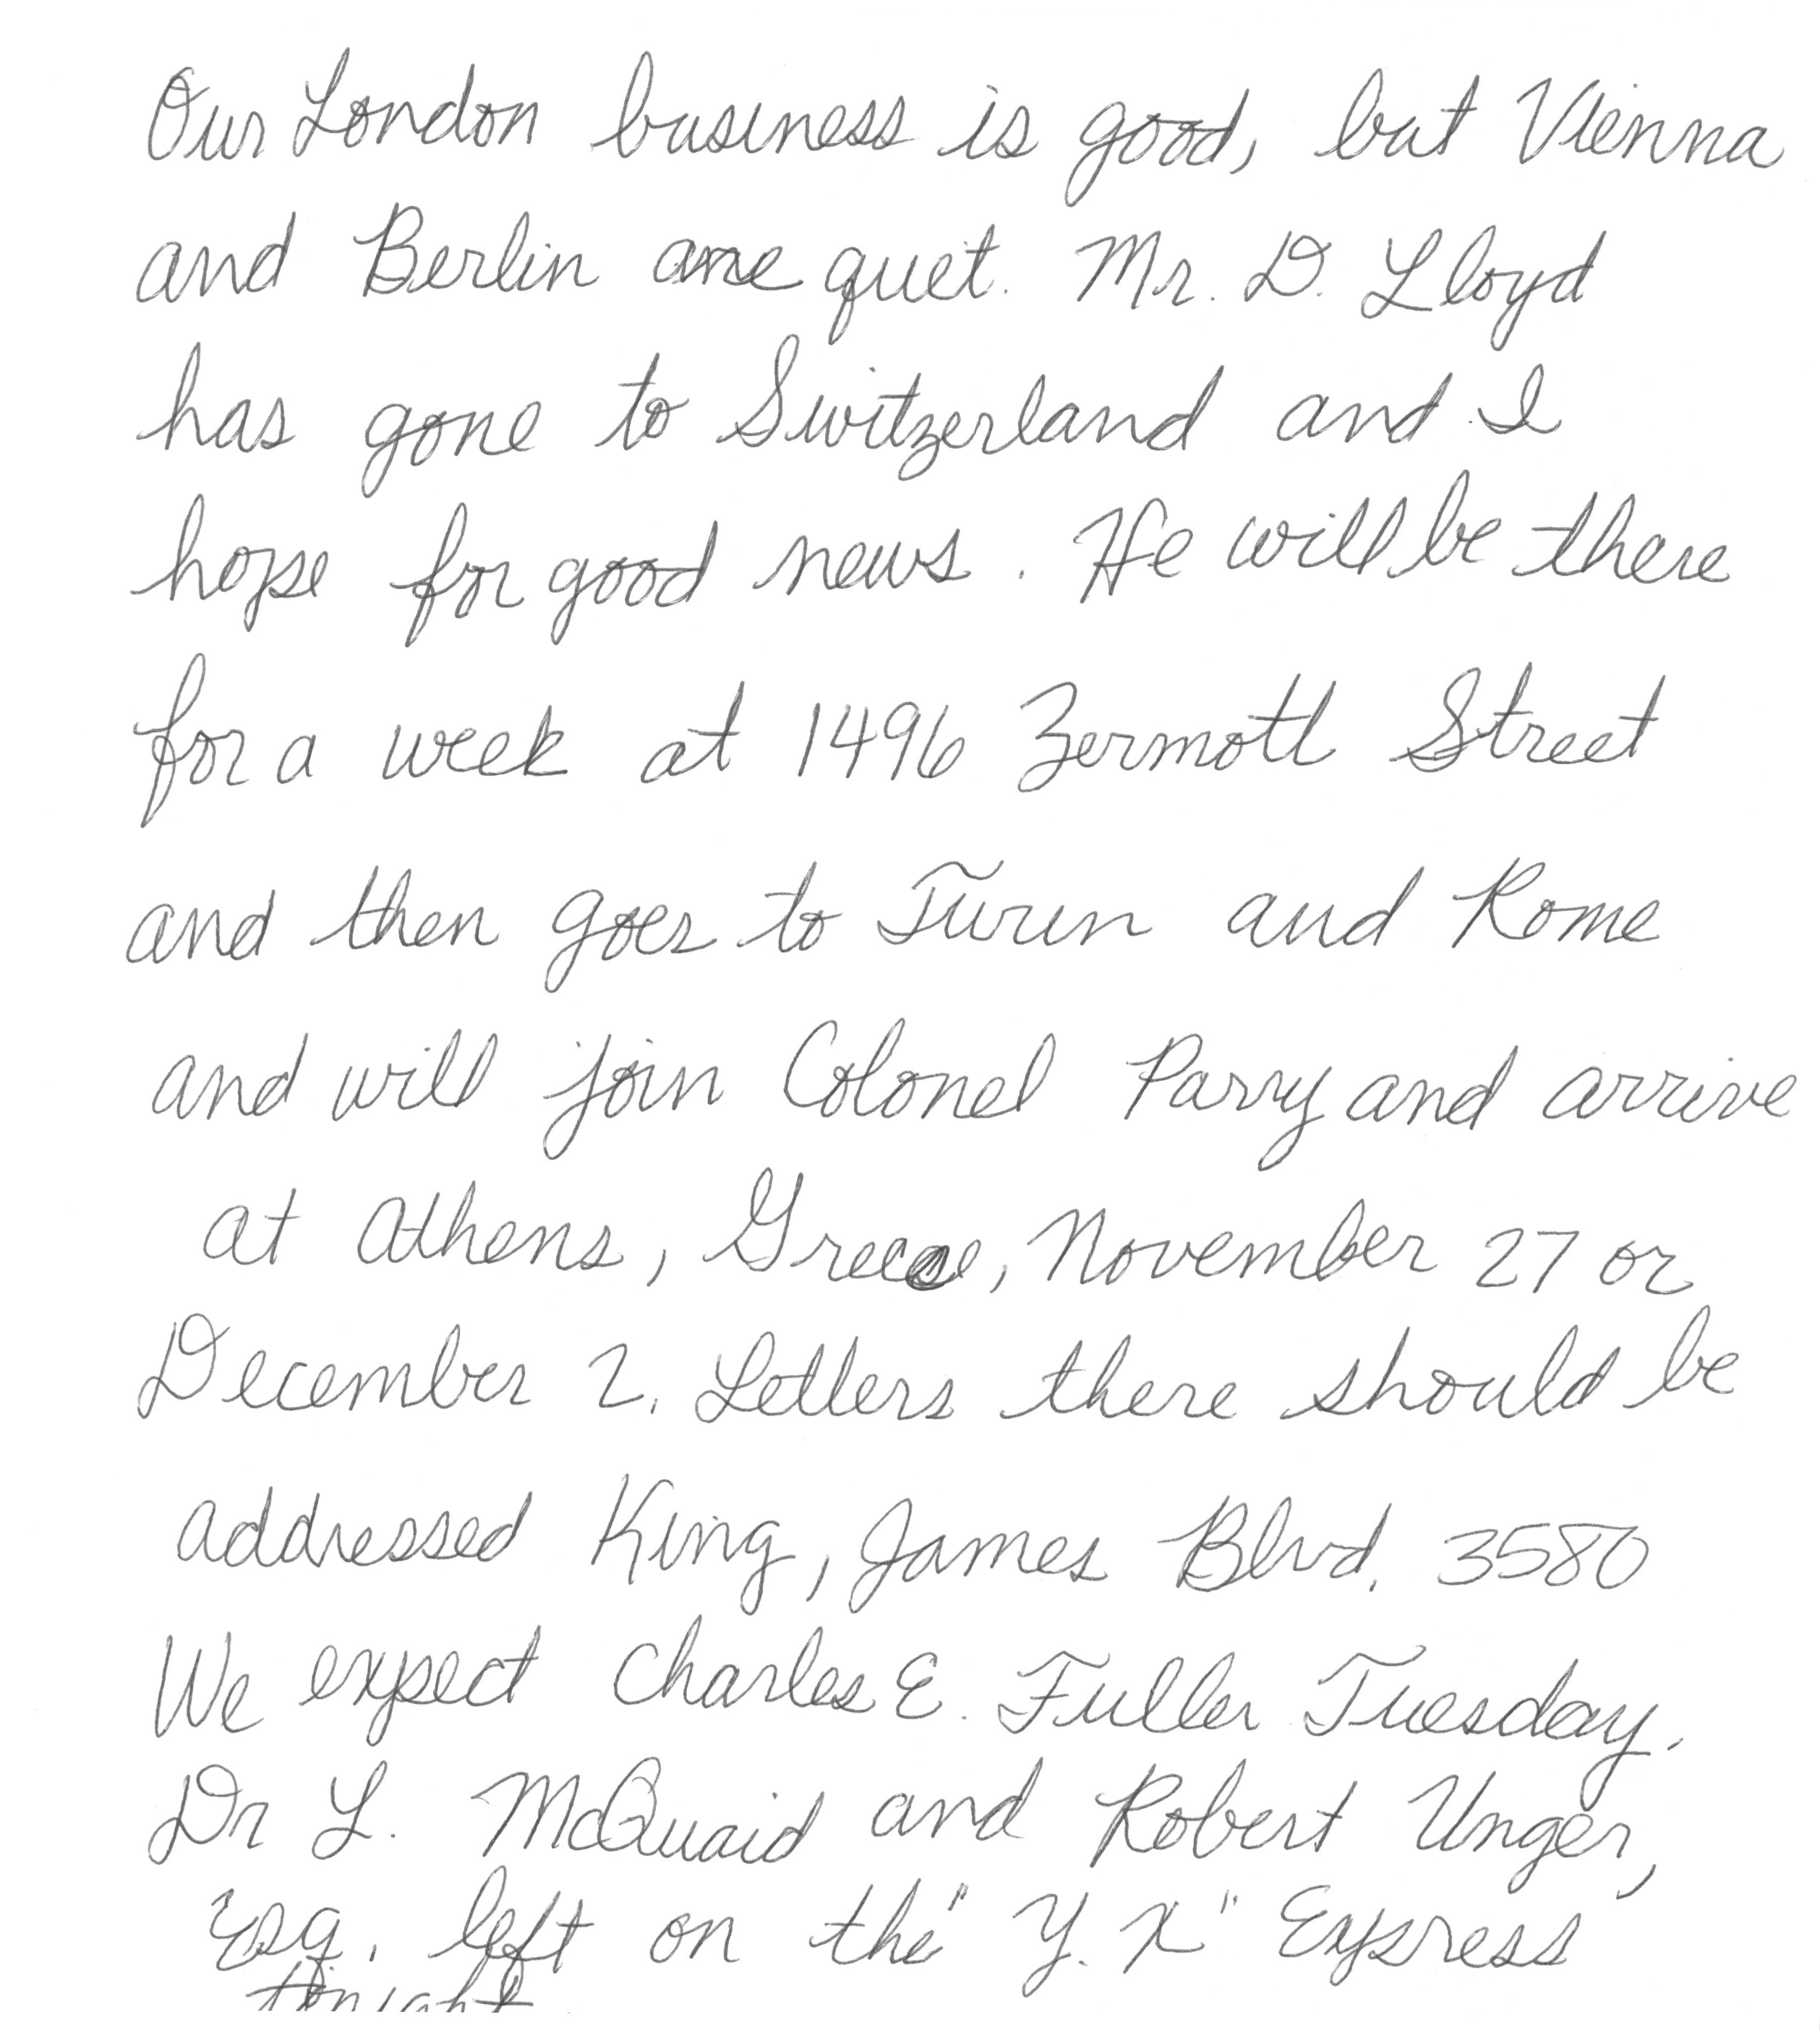 Our London business is good, but Vienna
and Berlin are quiet. Mr. D. Lloyd
has gone to Switzerland and I
hope for good news. He will be there
for a week at 1496 Zermott Street
and then goes to Turin and Rome
and will join Colonel Parry and arrive
at Athens, Greece, November 27 or
December 2. Letters there should be
addressed King, James Blvd. 3580
We expect Charles E. Fuller Tuesday.
Dr L. McQuaid and Robert Unger,
Esq. left on the "Y. X" Express
tonight